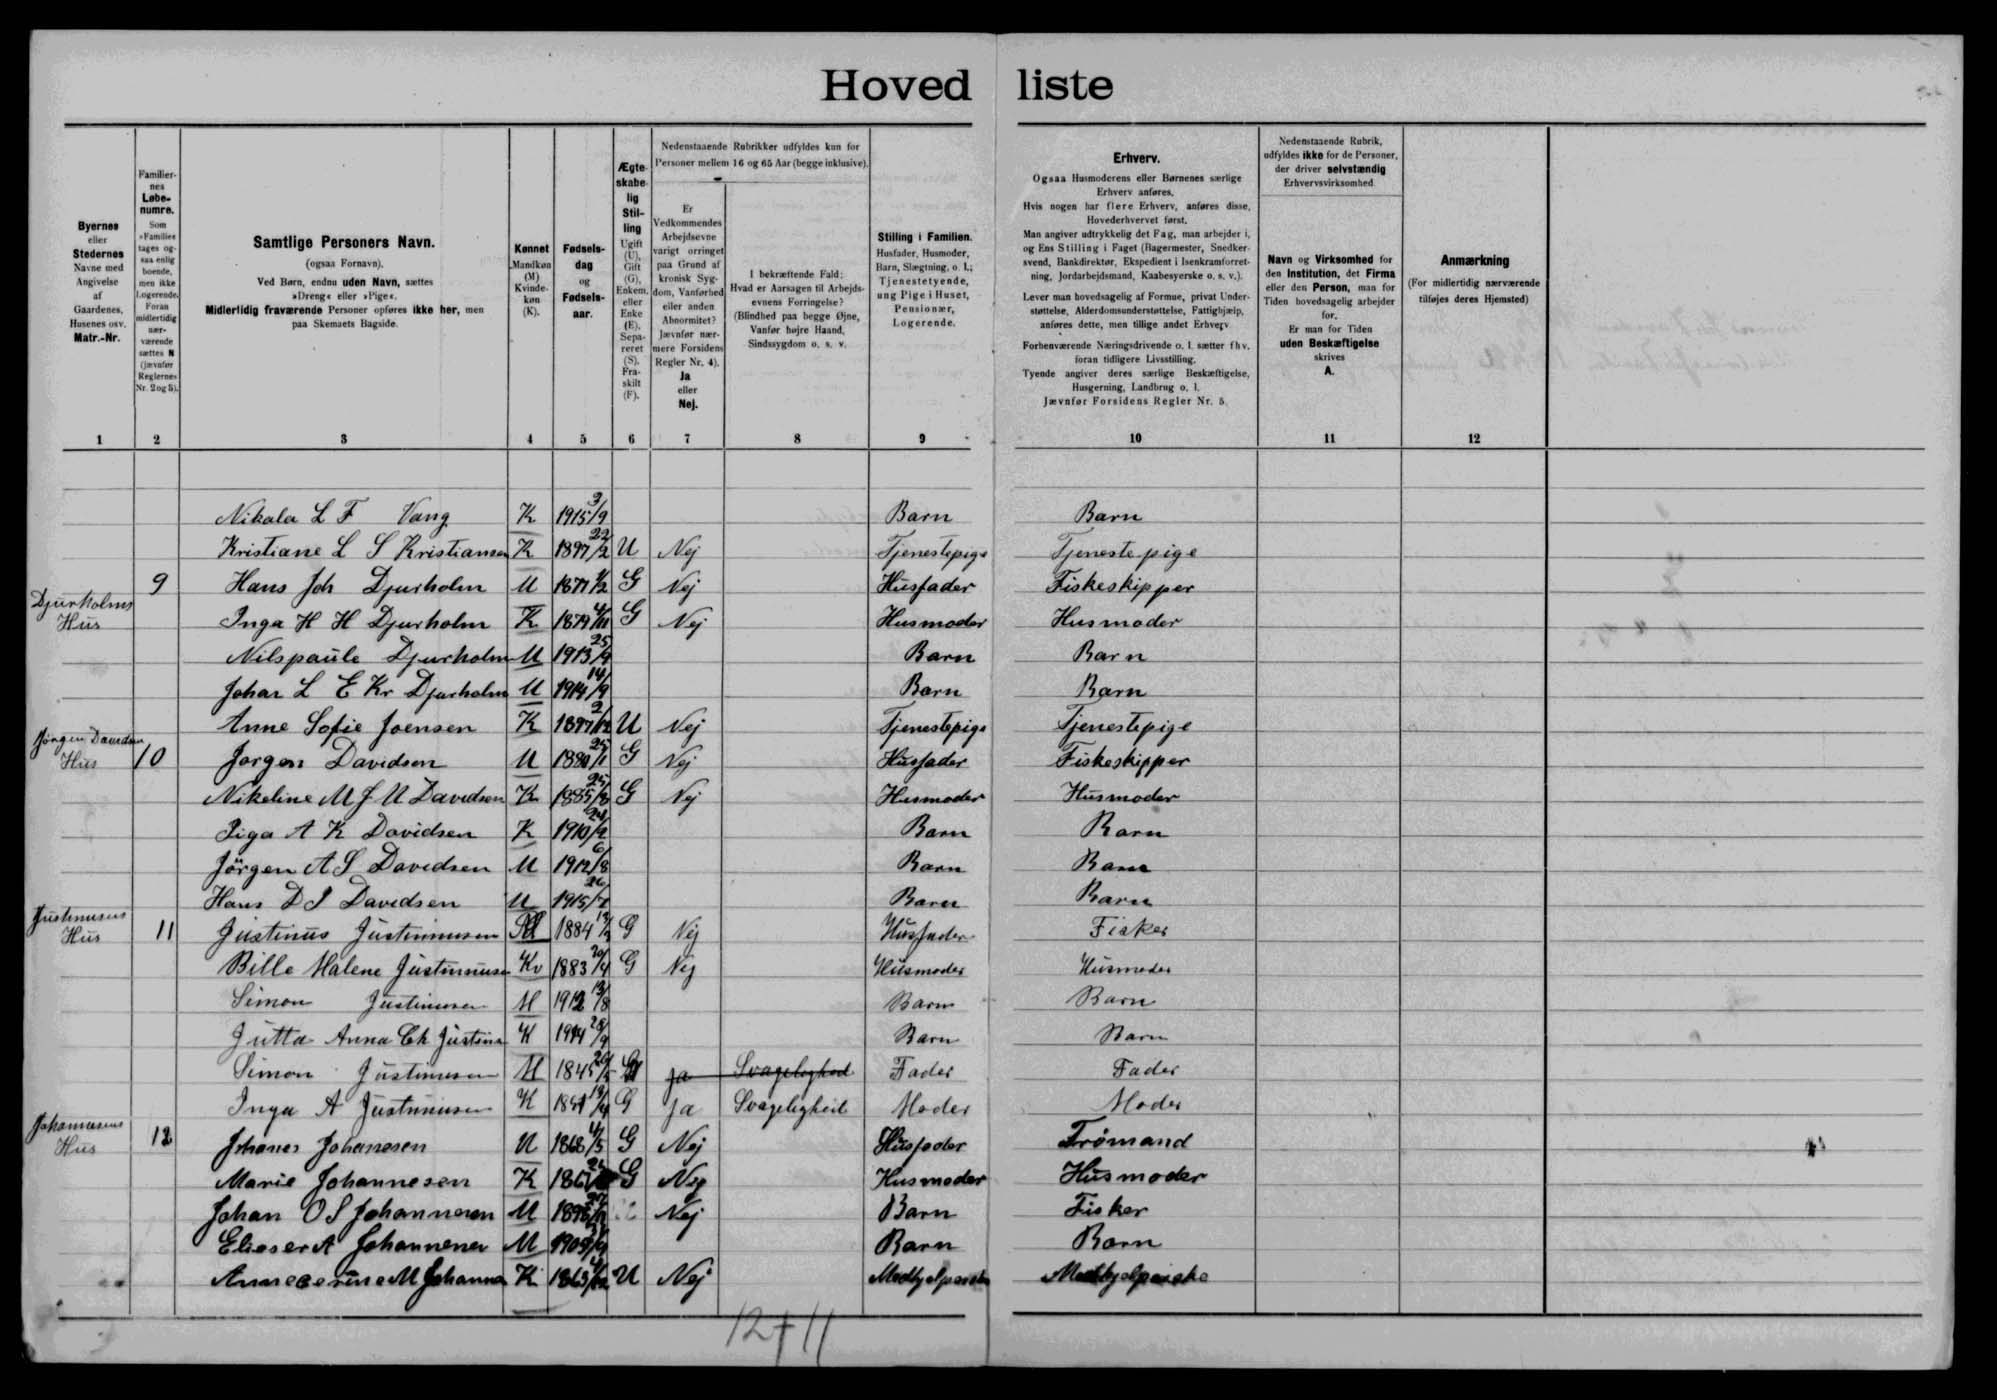 Hoved liste
Byernes
eller
Stedernes
Navne med
Angivelse
af
Gaardenes,
Husenes osv.
Matr.-Nr.
Familier-
nes
Løbe-
numre.
Som
»Familie«
tages og-
saa enlig
boende,
men ikke
Logerende.
Foran
midlertidig
nær-
værende
sættes N
(jævnfør
Reglernes
Nr. 2 og 5).
Samtlige Personers Navn.
(ogsaa Fornavn).
Ved Børn, endnu uden Navn, sættes
»Dreng« eller »Pige«.
Midlertidig fraværende Personer opføres ikke her, men
paa Skemaets Bagside.
Kønnet
Mandkøn
(M)
Kvinde-
køn
(K).
Fødsels-
dag
og
Fødsels-
aar.
Ægte-
skabe-
lig
Stil-
ling
Ugift
(U),
Gift
(G),
Enkem.
eller
Enke
(E),
Sepa-
reret
(S),
Fra-
skilt
(F).
Nedenstaaende Rubrikker udfyldes kun for
Personer mellem 16 og 65 Aar (begge inklusive).
Er
Vedkommendes
Arbejdsevne
varigt orringet
paa Grund af
kronisk Syg-
dom, Vanførhed
eller anden
Abnormitet?
Jævnfør nær-
mere Forsidens
Regler Nr. 4).
Ja
eller
Nej.
I bekræftende Fald:
Hvad er Aarsagen til Arbejds-
evnens Forringelse?
(Blindhed paa begge Øjne,
Vanfør højre Haand,
Sindssygdom o. s. v.
Stilling i Familien.
Husfader, Husmoder,
Barn, Slægtning, o. l.;
Tjenestetyende,
ung Pige i Huset,
Pensionær,
Logerende.
Erhverv.
Ogsaa Husmoderens eller Børnenes særlige
Erhverv anføres.
Hvis nogen har flere Erhverv, anføres disse,
Hovederhvervet først.
Man angiver udtrykkelig det Fag, man arbejder i,
og Ens Stilling i Faget (Bagermester, Snedker-
svend, Bankdirektør, Ekspedient i Isenkramforret-
ning, Jordarbejdsmand, Kaabesyerske o. s. v.).
Lever man hovedsagelig af Formue, privat Under-
støttelse, Alderdomsunderstøttelse, Fattighjælp,
anføres dette, men tillige andet Erhverv
Forhenværende Næringsdrivende o. l. sætter fhv.
foran tidligere Livsstilling.
Tyende angiver deres særlige Beskæftigelse,
Husgerning, Landbrug o. l.
Jævnfør Forsidens Regler Nr. 5.
Nedenstaaende Rubrik,
udfyldes ikke for de Personer,
der driver selvstændig
Erhvervsvirksomhed
Navn og Virksomhed for
den Institution, det Firma
eller den Person, man for
Tiden hovedsagelig arbejder
for.
Er man for Tiden
uden Beskæftigelse
skrives
A.
Anmærkning
(For midlertidig nærværende
tilføjes deres Hjemsted)
1 2 3 4 5 6 7 8 9 10 11 12
Nikala L F Vang K 1915 3/9 Barn Barn
Kristiane L S Kristiansen K 1897 22/2 U Nej Tjenestepige Tjenestepige
9 Hans Joh Djurholm M 1877 1/2 G Nej Husfader Fiskeskipper
Djurholms
Hus Inga H H Djurholm K 1879 4/11 G Nej Husmoder Husmoder
Nilspaule Djurholm M 1913 25/9 Barn Barn
Johan L E Kr Djurholm M 1914 14/9 Barn Barn
Anne Sofie Joensen K 1897 2/12 U Nej Tjenestepige Tjenestepige
Jörgen Davidsen
Hus 10 Jørgen Davidsen M 1880 25/1 G Nej Husfader Fiskeskipper
Nikeline M J M Davidsen K 1885 25/8 G Nej Husmoder Husmoder
A K Davidsen K 1910 24/2 Barn Barn
Jörgen A S Davidsen M 1912 6/8 Barn Barn
Hans D J Davidsen M 1915 26/7 Barn Barn
Justinusens
Hus 11 Justinus Justinussen M 1884 12/2 G Nej Husfader Fisker
Bille Malene Justinussen Kv 1883 20/4 G Nej Husmoder Husmoder
Simon Justinussen M 1912 13/8 Barn Barn
Jutta Anna Ch Justinu K 1914 28/9 Barn Barn
Simon Justinussen M 1845 20/5 G Ja Svagelighed Fader Fader
Inga A Justinussen K 1851 13/4 G Ja Svagelighed Moder Moder
Johannesens
Hus 12 Johanes Johanesen M 1868 4/5 G Nej Husfader Trømand
Marie Johannesen K G Nej Husmoder Husmoder
Johan O S Johannesen M Nej Barn Fisker
Elieser A Johannesen M Barn Barn
M Johanne K 1863 4/12 U Nej
12+11